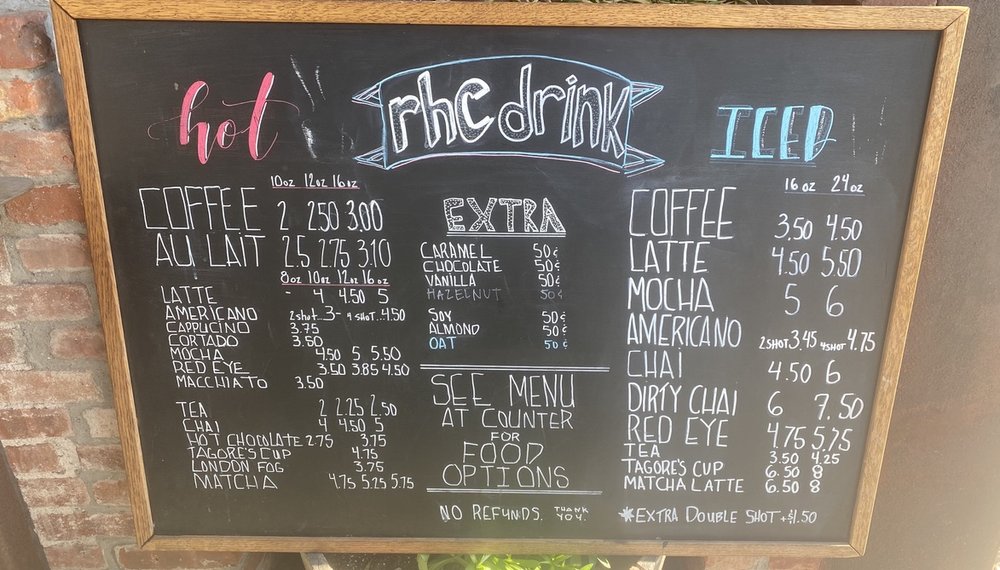 rhc drink
hot
10oz 12oz 16oz
COFFEE 2 2.50 3.00
AU LAIT 2.5 2.75 3.10
8oz 10oz 12oz 16oz
LATTE - 4 4.50 5
AMERICANO 2shot..3- 4 SHOT..4.50
CAPPUCINO 3.75
CORTADO 3.50
MOCHA 4.50 5 5.50
RED EYE 3.50 3.85 4.50
MACCHIATO 3.50
TEA 2 2.25 2.50
CHAI 4 4.50 5
HOT CHOCOLATE 2.75 3.75
TAGORE'S CUP 4.75
LONDON FOG 3.75
MATCHA 4.75 5.25 5.75
EXTRA
CARAMEL 50¢
CHOCOLATE 50¢
VANILLA 50¢
HAZELNUT 50¢
SOY 50¢
ALMOND 50¢
OAT 50¢
SEE MENU
AT COUNTER
FOR
FOOD
OPTIONS
NO REFUNDS. THANK YOU.
ICED
16 oz 24 oz
COFFEE 3.50 4.50
LATTE 4.50 5.50
MOCHA 5 6
AMERICANO 2SHOT 3.45 4SHOT 4.75
CHAI 4.50 6
DIRTY CHAI 6 7.50
RED EYE 4.75 5.75
TEA 3.50 4.25
TAGORE'S CUP 6.50 8
MATCHA LATTE 6.50 8
*EXTRA DOUBLE SHOT +$1.50